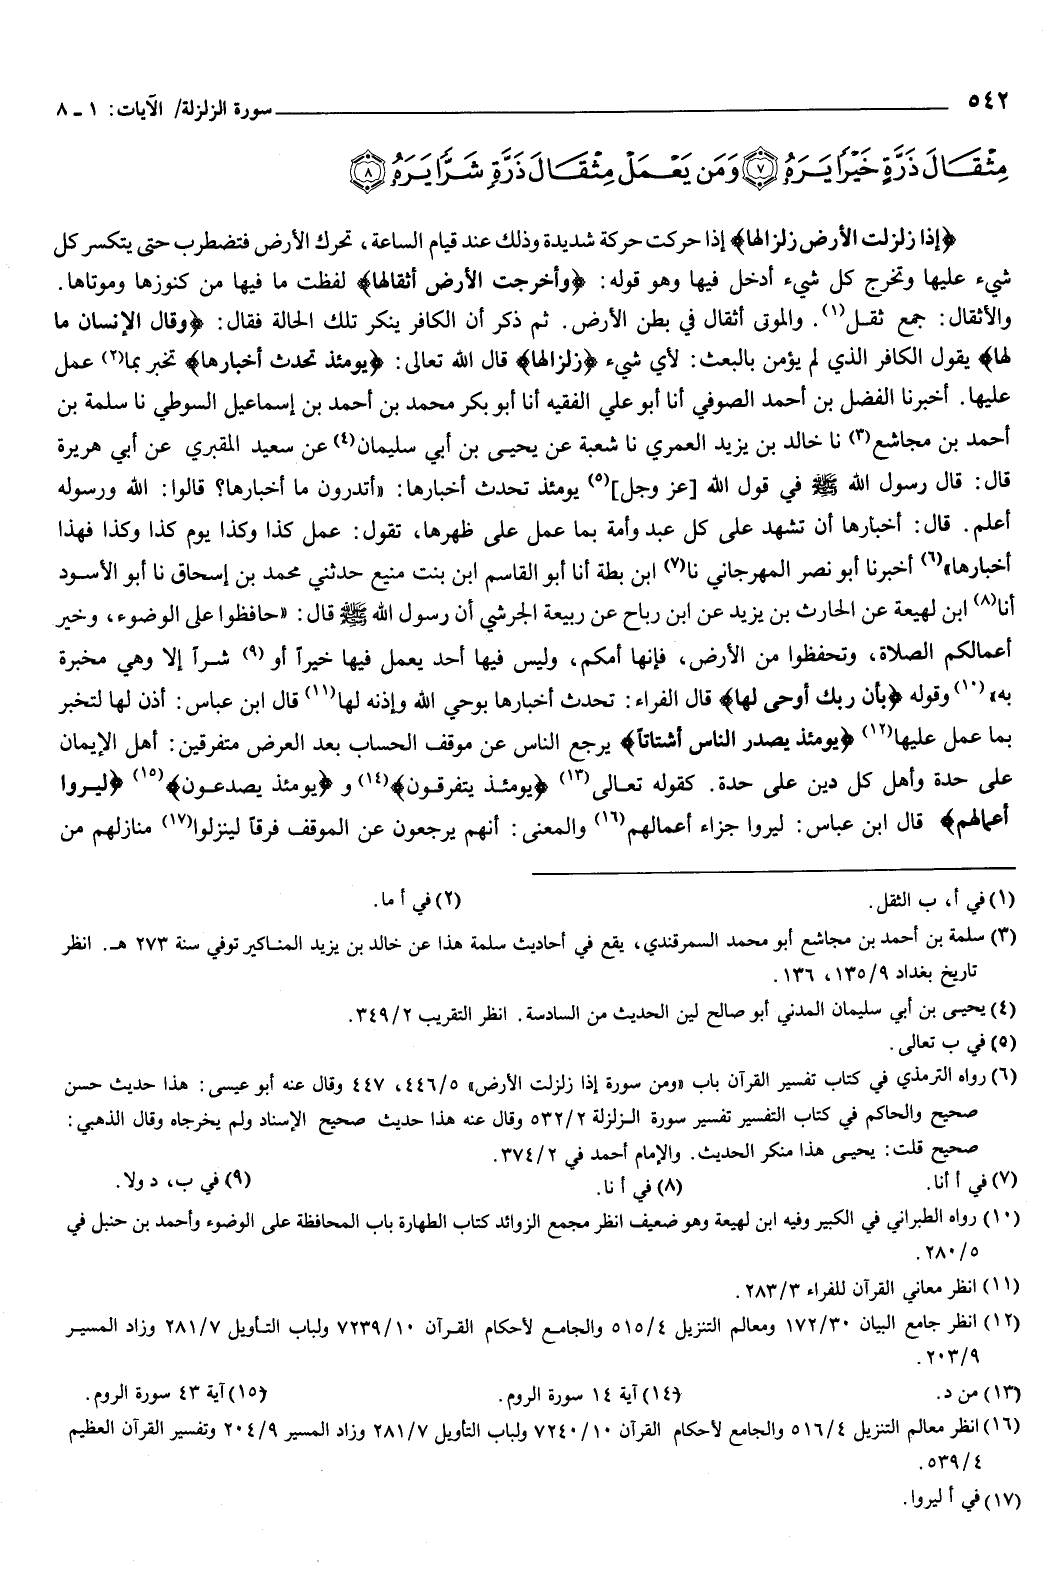 ٥٤٢ سورة الزلزلة/ الآيات: ١ ـ ٨
مِثْقَالَ ذَرَّةٍ خَيْرًا يَرَهُ ﴿٧﴾ وَمَن يَعْمَلْ مِثْقَالَ ذَرَّةٍ شَرًّا يَرَهُ ﴿٨﴾
﴿إذا زلزلت الأرض زلزالها﴾ إذا حركت حركة شديدة وذلك عند قيام الساعة، تحرك الأرض فتضطرب حتى يتكسر كل
شيء عليها وتخرج كل شيء أدخل فيها وهو قوله: ﴿وأخرجت الأرض أثقالها﴾ لفظت ما فيها من كنوزها وموتاها.
والأثقال: جمع ثقل(١). والموتى أثقال في بطن الأرض. ثم ذكر أن الكافر ينكر تلك الحالة فقال: ﴿وقال الإنسان ما
لها﴾ يقول الكافر الذي لم يؤمن بالبعث: لأي شيء ﴿زلزالها﴾ قال الله تعالى: ﴿يومئذ تحدث أخبارها﴾ تخبر بما(٢) عمل
عليها. أخبرنا الفضل بن أحمد الصوفي أنا أبو علي الفقيه أنا أبو بكر محمد بن أحمد بن إسماعيل السوطي نا سلمة بن
أحمد بن مجاشع(٣) نا خالد بن يزيد العمري نا شعبة عن يحيى بن أبي سليمان(٤) عن سعيد المقبري عن أبي هريرة
قال: قال رسول الله ﷺ في قول الله [عز وجل](٥) يومئذ تحدث أخبارها: «أتدرون ما أخبارها؟ قالوا: الله ورسوله
أعلم. قال: أخبارها أن تشهد على كل عبد وأمة بما عمل على ظهرها، تقول: عمل كذا وكذا يوم كذا وكذا فهذا
أخبارها»(٦) أخبرنا أبو نصر المهرجاني نا(٧) ابن بطة أنا أبو القاسم ابن بنت منيع حدثني محمد بن إسحاق نا أبو الأسود
أنا(٨) ابن لهيعة عن الحارث بن يزيد عن ابن رباح عن ربيعة الجرشي أن رسول الله ﷺ قال: «حافظوا على الوضوء، وخير
أعمالكم الصلاة، وتحفظوا من الأرض، فإنها أمكم، وليس فيها أحد يعمل فيها خيراً أو (٩) شراً إلا وهي مخبرة
به» (١٠) وقوله ﴿بأن ربك أوحى لها﴾ قال الفراء: تحدث أخبارها بوحي الله وإذنه لها(١١) قال ابن عباس: أذن لها لتخبر
بما عمل عليها(١٢) ﴿يومئذ يصدر الناس أشتاتاً﴾ يرجع الناس عن موقف الحساب بعد العرض متفرقين: أهل الإيمان
على حدة وأهل كل دين على حدة. كقوله تعالى(١٣) ﴿يومئذ يتفرقون﴾(١٤) و ﴿يومئذ يصدعون﴾(١٥) ﴿ليروا
أعمالهم﴾ قال ابن عباس: ليروا جزاء أعمالهم(١٦) والمعنى: أنهم يرجعون عن الموقف فرقاً لينزلوا(١٧) منازلهم من
(١) في أ، ب الثقل. (٢) في أ ما.
(٣) سلمة بن أحمد بن مجاشع أبو محمد السمرقندي، يقع في أحاديث سلمة هذا عن خالد بن يزيد المناكير توفي سنة ٢٧٣ هـ. انظر
تاريخ بغداد ٩/ ١٣٥، ١٣٦.
(٤) يحيى بن أبي سليمان المدني أبو صالح لين الحديث من السادسة. انظر التقريب ٢/ ٣٤٩.
(٥) في ب تعالى.
(٦) رواه الترمذي في كتاب تفسير القرآن باب «ومن سورة إذا زلزلت الأرض» ٥/ ٤٤٦، ٤٤٧ وقال عنه أبو عيسى: هذا حديث حسن
صحيح والحاكم في كتاب التفسير تفسير سورة الزلزلة ٢/ ٥٣٢ وقال عنه هذا حديث صحيح الإسناد ولم يخرجاه وقال الذهبي:
صحيح قلت: يحيى هذا منكر الحديث. والإمام أحمد في ٢/ ٣٧٤.
(٧) في أ أنا. (٨) في أ نا. (٩) في ب، د ولا.
(١٠) رواه الطبراني في الكبير وفيه ابن لهيعة وهو ضعيف انظر مجمع الزوائد كتاب الطهارة باب المحافظة على الوضوء وأحمد بن حنبل في
٥/ ٢٨٠.
(١١) انظر معاني القرآن للفراء ٣/ ٢٨٣.
(١٢) انظر جامع البيان ٣٠/ ١٧٢ ومعالم التنزيل ٤/ ٥١٥ والجامع لأحكام القرآن ١٠/ ٧٢٣٩ ولباب التأويل ٧/ ٢٨١ وزاد المسير
٩/ ٢٠٣.
(١٣) من د. (١٤) آية ١٤ سورة الروم. (١٥) آية ٤٣ سورة الروم.
(١٦) انظر معالم التنزيل ٤/ ٥١٦ والجامع لأحكام القرآن ١٠/ ٧٢٤٠ ولباب التأويل ٧/ ٢٨١ وزاد المسير ٩/ ٢٠٤ وتفسير القرآن العظيم
٤/ ٥٣٩.
(١٧) في أ ليروا.